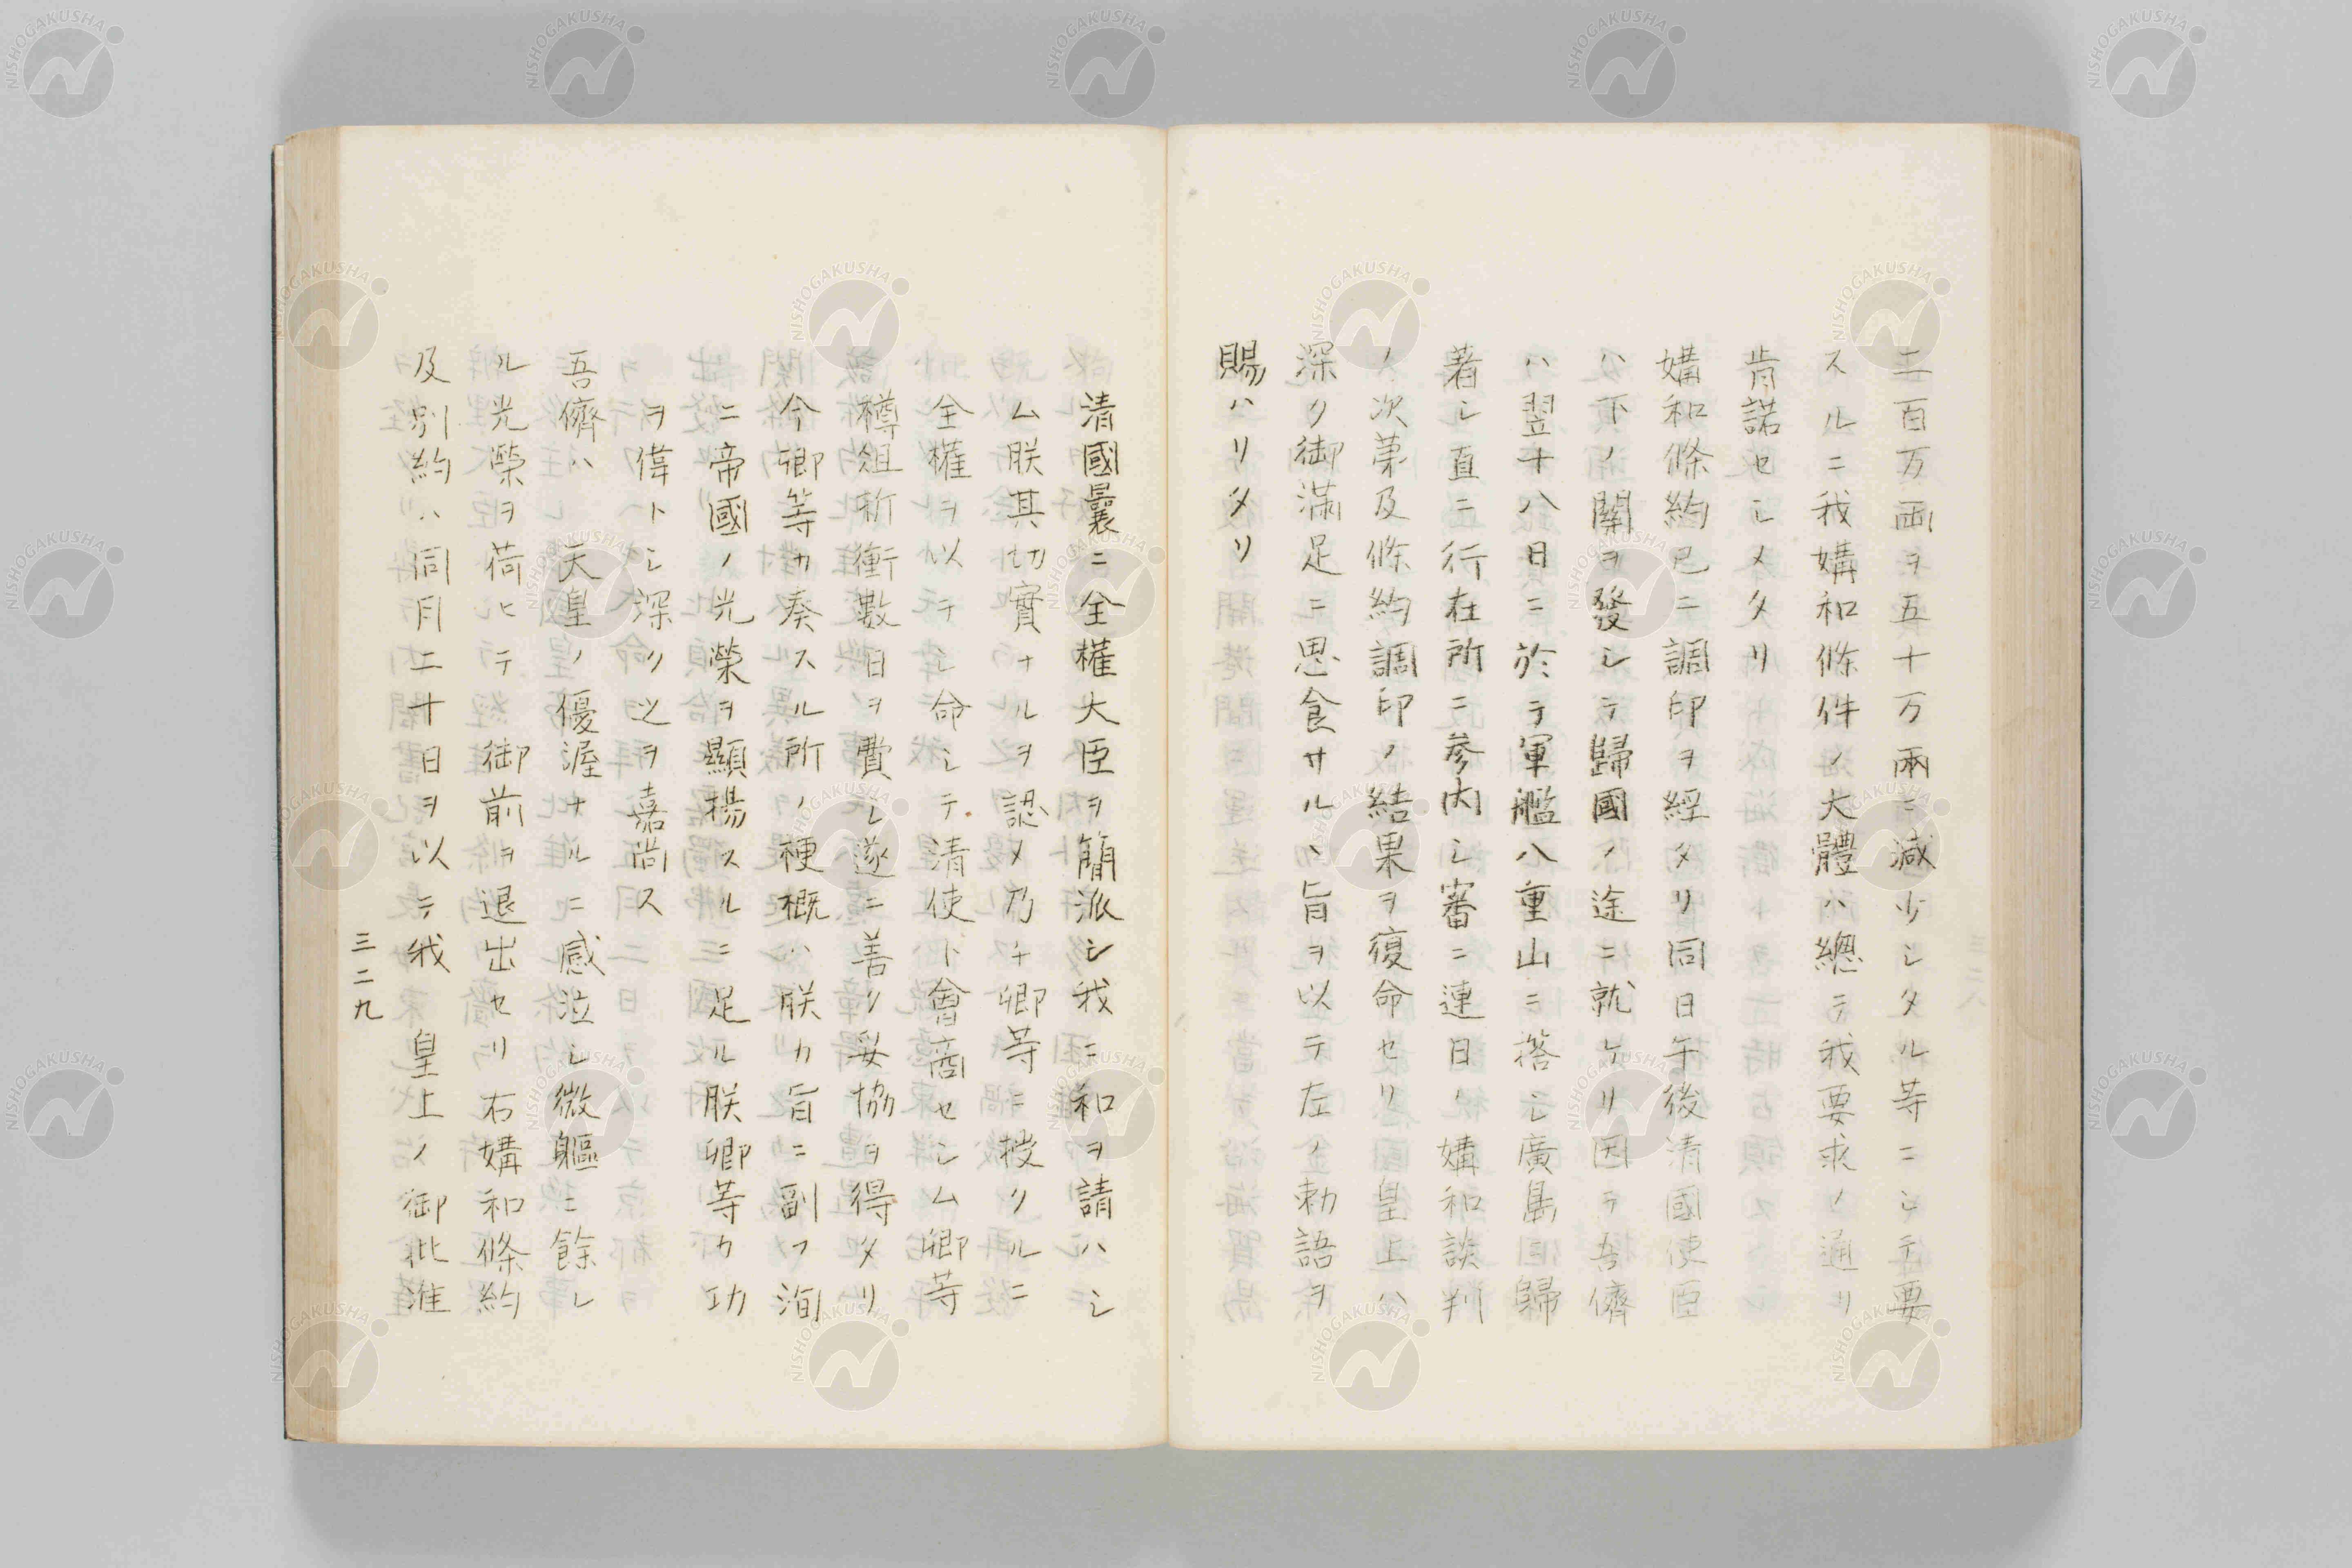 二百万両ヲ五十万兩ニ減少シタル等ニシテ要
スルニ我媾和條件ノ大體ハ總テ我要求ノ通リ
肯諾セシメタリ
媾和條約已ニ調印ヲ經タリ同日午後清國使臣
ハ下ノ關ヲ發シテ歸國ノ途ニ就ケリ因テ吾儕
ハ翌十八日ニ於テ軍艦八重山ニ搭シ廣島ニ歸
著シ直ニ行在所ニ參内シ審ニ連日ノ媾和談判
ノ次第及條約調印ノ結果ヲ復命セリ皇上ハ
深ク御滿足ニ思食サルヽ旨ヲ以テ左ノ勅語ヲ
賜ハリタリ
清國曩ニ全權大臣ヲ簡派シ我ニ和ヲ請ハシ
ム朕其切實ナルヲ認メ乃チ卿等ニ授クルニ
全權ヲ以テシ命シテ清使ト會商セシム卿等
樽俎折衝數日ヲ費シ遂ニ善ク妥協ヲ得タリ
今卿等カ奏スル所ノ梗概ハ朕カ旨ニ副フ洵
ニ帝國ノ光榮ヲ顯揚スルニ足ル朕卿等カ功
ヲ偉トシ深ク之ヲ嘉尚ス
吾儕ハ 天皇ノ優渥ナルニ感泣シ微軀ニ餘レ
ル光榮ヲ荷ヒテ御前ヲ退出セリ右媾和條約
及別約ハ同月二十日ヲ以テ我 皇上ノ御批准
三二九
NISHOGAKUSHA